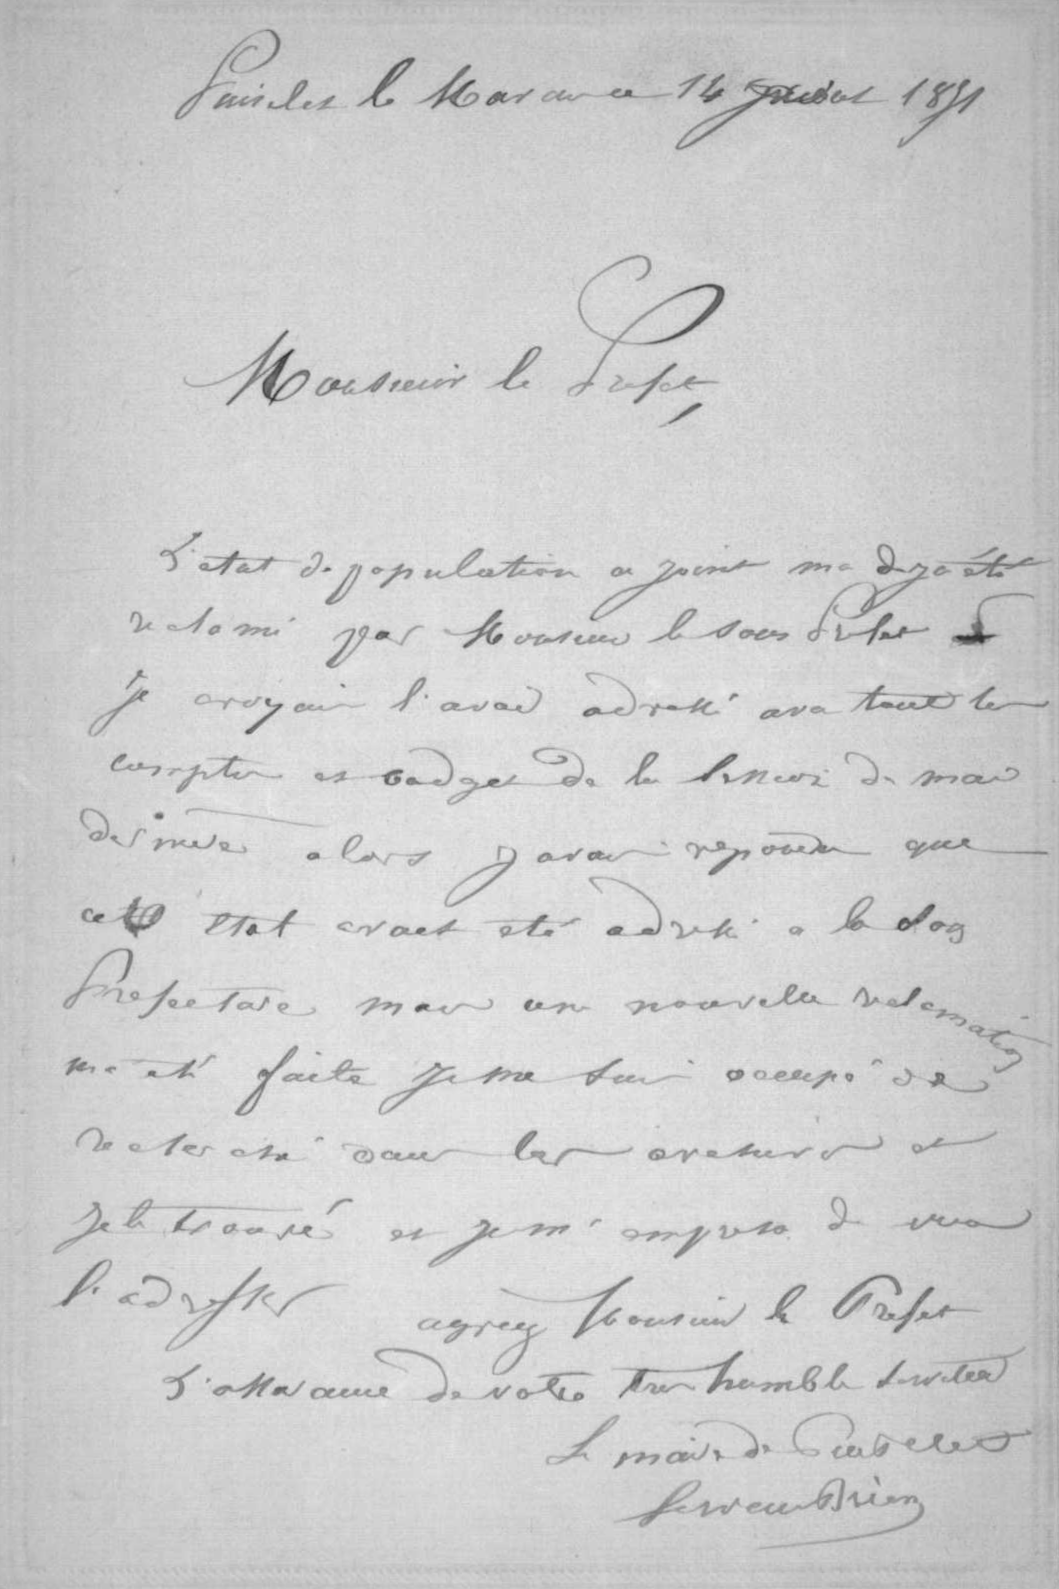 Puiselet le Marais ce 14 Juillet 1891
Monsieur le Prefet,
L'etat de population a joint ma deja été
reclamé par Monsieur le sous Prefet
Je croyair l'avoir adressé avec tout les
comptes et Budget de la session de mai
derniere alors J'avais repondu que
cette etat avait eté adressé a la Sous
Prefecture mais une nouvelle reclamation
ma eté faite Je me suis occupé de
recherche dans les archives et
Je le trouvé et je m'empresse de vous
l'adresser agreez Monsieur le Prefet
L'assurance de votre tres humble serviteur
Le maire de Puiselet